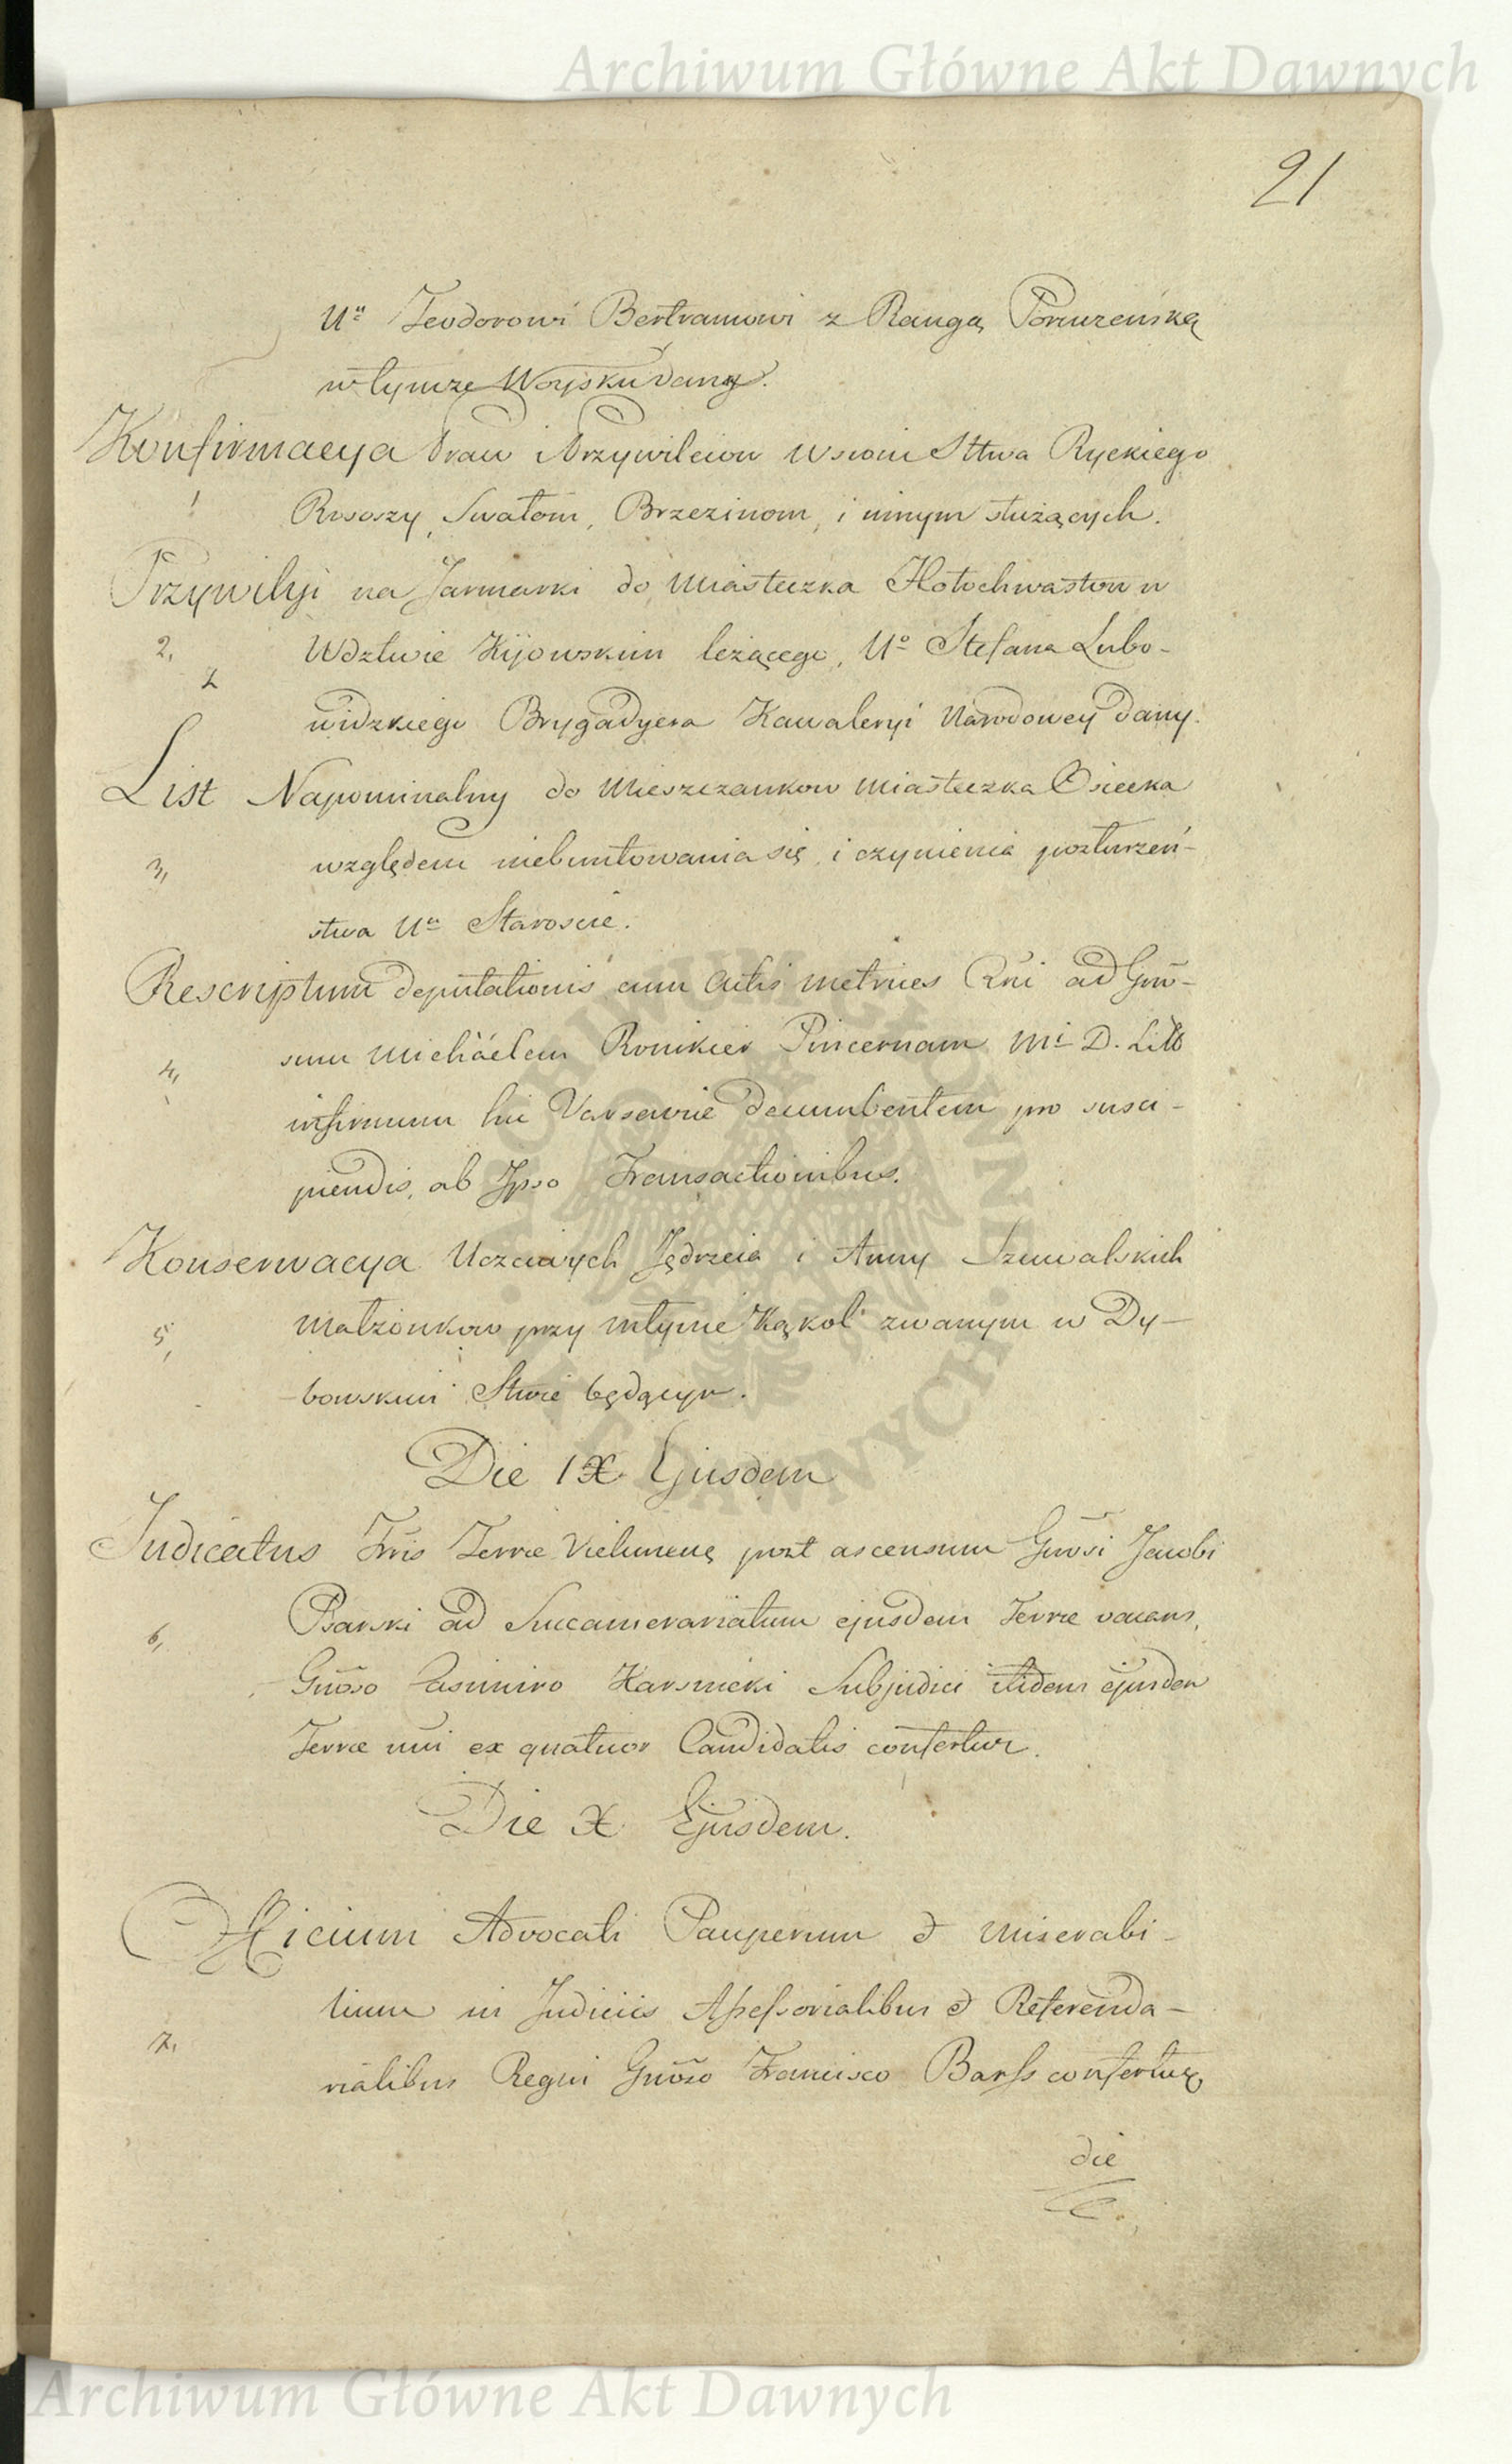 Archiwum Główne Akt Dawnych
21
Uu Teodorowi Bertramowi z Rangą Poruczeńską
w tymże Woysku dany.
Konfirmacya Praw i Przywileiow Wsiom Sttwa Ryckiego
1 Rososzy, Swatom, Brzezinom, i innym służących.
Przywiley na Jarmarki do Miasteczka Hołochwastow w
2, Wdztwie Kijowskim leżącego, Uo Stefana Lubo-
2 widzkiego Brygadyera Kawaleryi Narodowey dany.
List Napominalny do Mieszczankow Miasteczka Osiecka
3, względem niebuntowania się, i czynienia posłuszeń-
stwa Uu Staroscie.
Rescriptum deputationis cum Actis Metrices Rni ad Gnro-
4, sum Michaelem Ronikier Pincernam Mi D. Litt
infirmum hic Varsavie decumbentem pro susci-
piendis, ab Ipso Transactionibus.
Konserwacya Uczciwych Jędrzeia i Anny Szuwalskich
5, Małżonkow przy młynie Kąkol zwanym w Dy-
bowskim Stwie będącym.
Die IX Ejusdem
Judicatus Trris Terrae Vielunens post ascensum Gnrosi Jacobi
6, Psarski ad Succamerariatum ejusdem Terrae vacans,
Gnroso Casimiro Karsnicki Subjudici itidem ejusdem
Terrae uni ex quatuor Candidatis confertur.
Die X Ejusdem.
Officium Advocati Pauperum et Miserabi-
lium in Judiciis Assessorialibus et Referenda-
7, rialibus Regni Gnroso Francisco Barss confertur,
die
Archiwum Główne Akt Dawnych